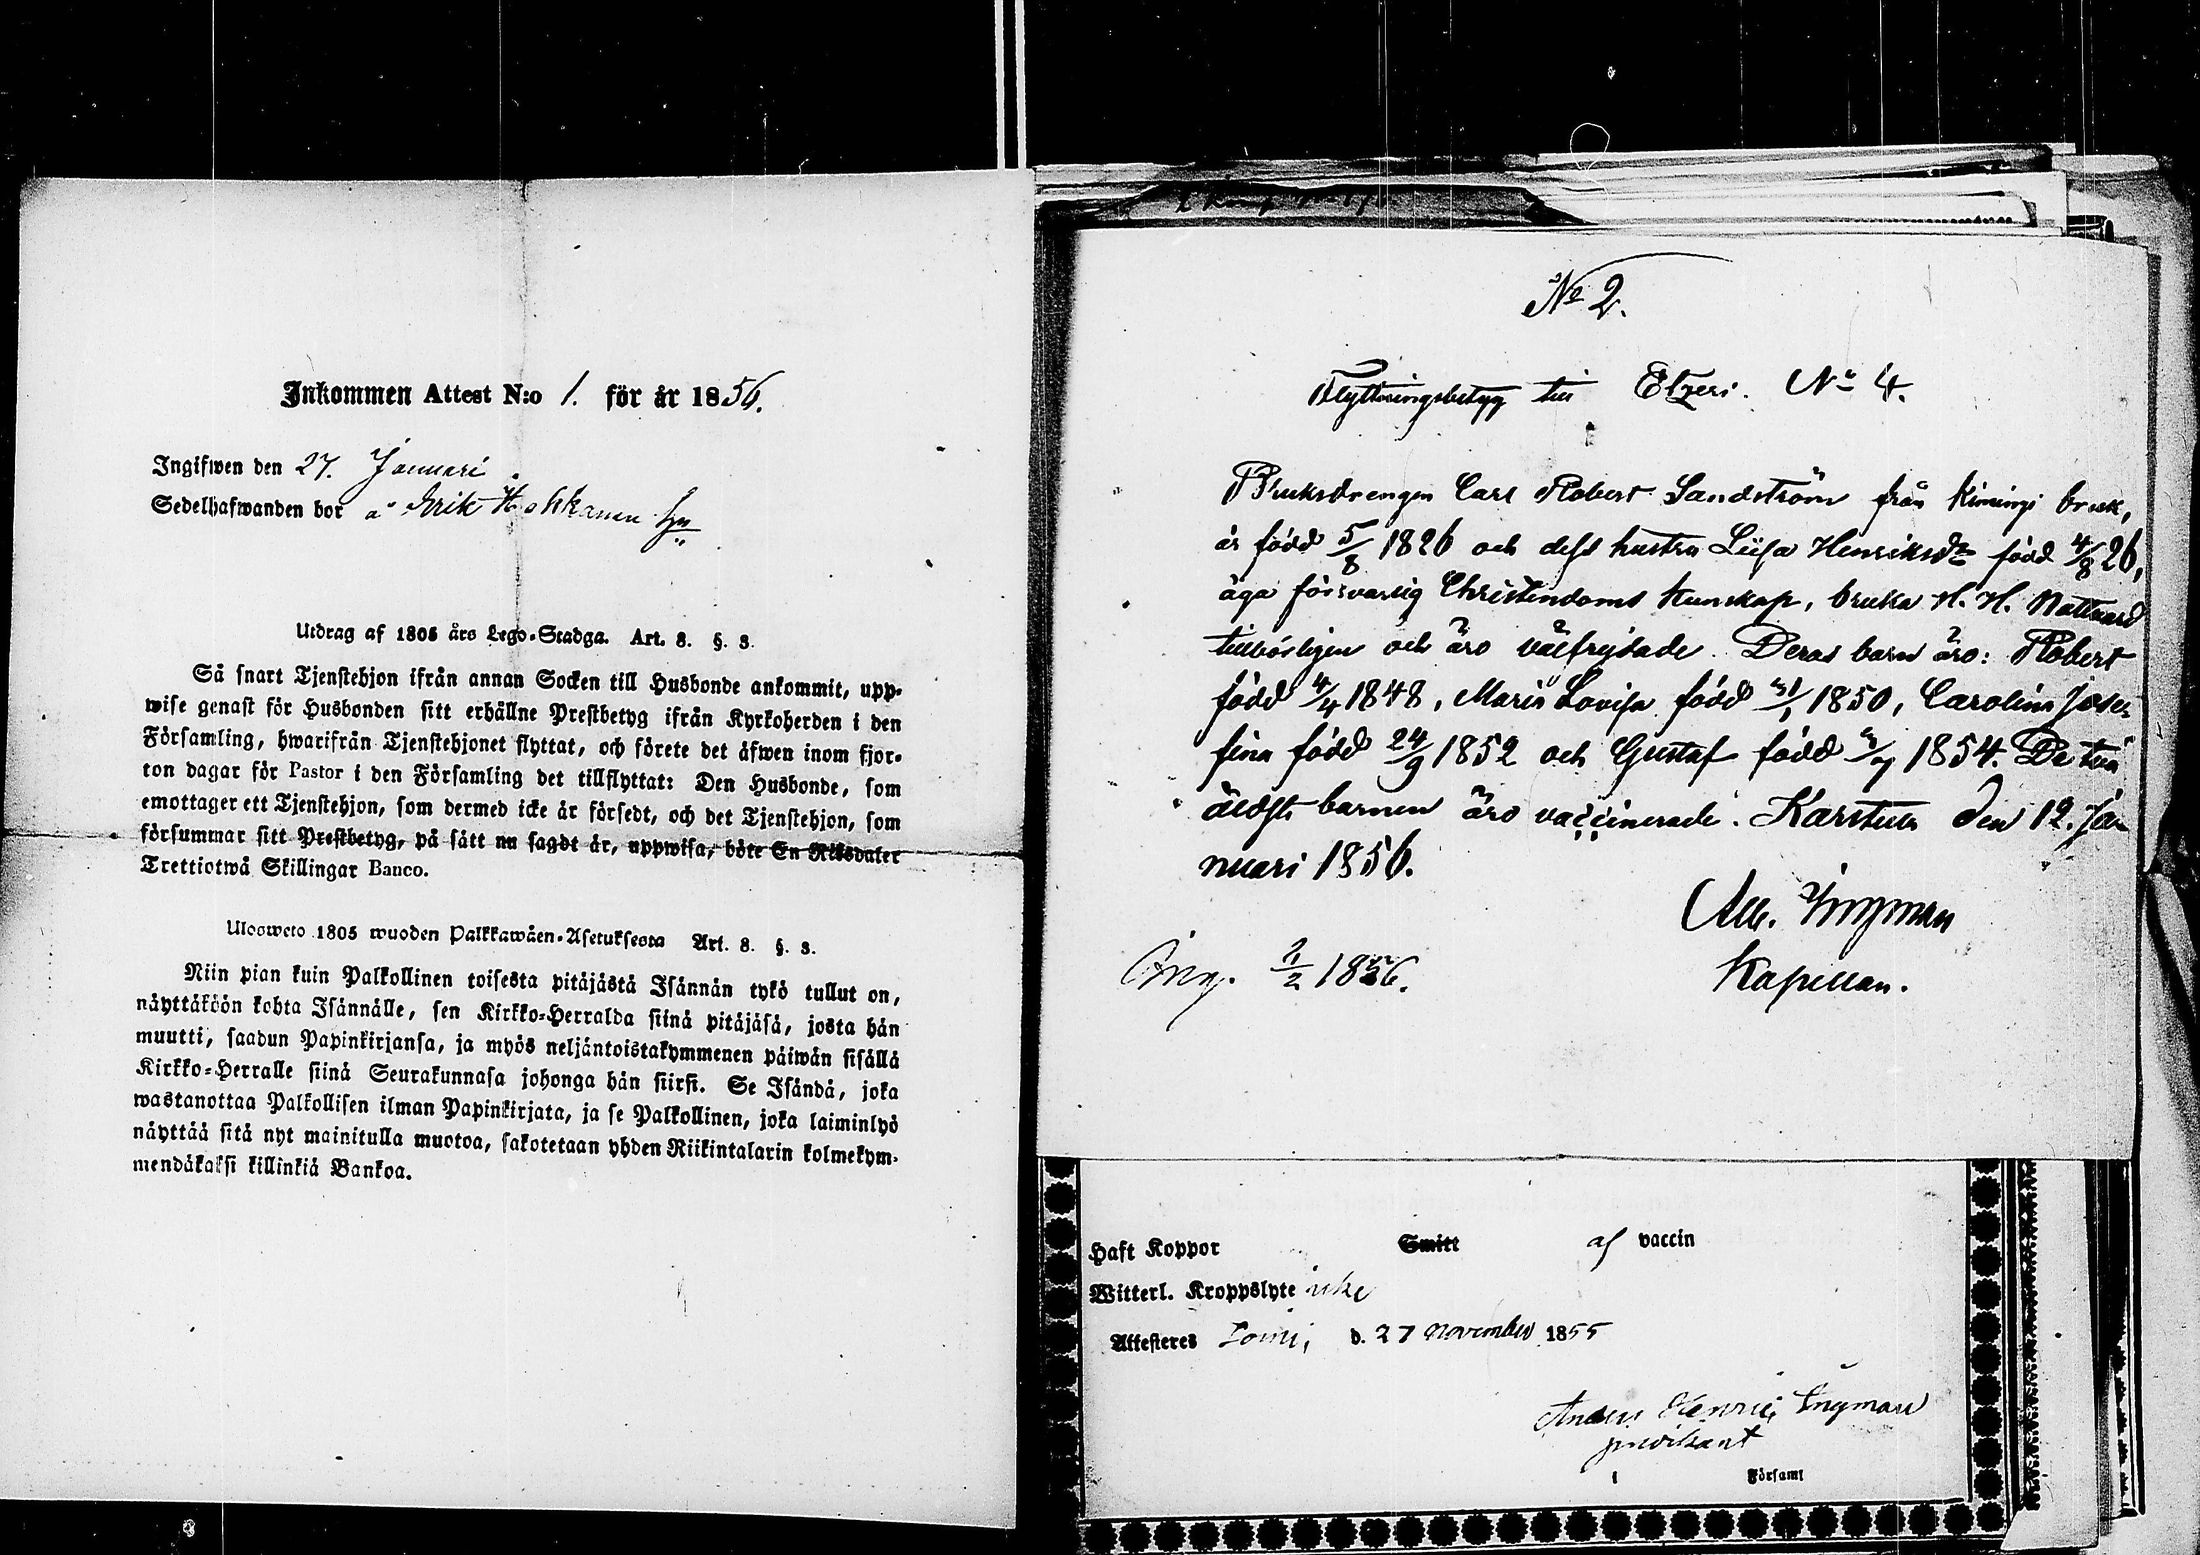 Inkommen Attest N:o 1. för år 1856.
Ingifwen den 27. Januari
Sedelhafwanden bor å Erik Hokkanen
Utdrag af 1805 års Lego-Stadga. Art. 8. §. 3.
Så snart Tjenstehjon ifrån annan Socken till Husbonde ankommit, upp-
wise genast för Husbonden sitt erhållne Prestbetyg ifrån Kyrkoherden i den
Församling, hwarifrån Tjenstehjonet flyttat, och förete det äfwen inom fjor-
ton dagar för Pastor i den Församling det tillflyttat: Den Husbonde, som
emottager ett Tjenstehjon, som dermed icke är försedt, och det Tjenstehjon, som
försummar sitt Prestbetyg, på sätt nu sagdt är, uppwisa, böte En Riksdaler
Trettiotwå Skillingar Banco.
Ulosweto 1805 wuoden Palkkawäen-Asetuksesta Art. 8. §. 3.
Niin pian kuin Palkollinen toisesta pitäjästä Isännän tykö tullut on,
näyttäköön kohta Isännälle, sen Kirkko-Herralda siinä pitäjäsä, josta hän
muutti, saadun Papinkirjansa, ja myös neljäntoistakymmenen päiwän sisällä
Kirkko-Herralle siinä Seurakunnasa johonga hän siirsi. Se Isändä, joka
wastanottaa Palkollisen ilman Papinkirjata, ja se Palkollinen, joka laiminlyö
näyttää sitä nyt mainitulla muotoa, sakotetaan yhden Riikintalarin kolmekym-
mendäkaksi killinkiä Bankoa.
No 2.
Flyttningsbetyg till Etzeri. No 4.
Bruksdrengen Carl Robert Sandström från Kimingi bruk,
är född 5/8 1826 och dess hustru Liisa Henriksdr född 4/8 26,
äga försvarlig Christendoms kunskap, bruka H. H. Nattvard
tillbörligen och äro välfrejdade. Deras barn äro: Robert
född 4/4 1848, Maria Lovisa född 31/1 1850, Carolina Jose-
fina född 24/9 1852 och Gustaf född 1854. De två
äldsta barnen äro vaccinerade. Karstula den 12. Ja-
nuari 1856.
Alb. Ingman
Kapellan.
Ing. 1/2 1856.
Haft Koppor Smitt af vaccin
Witterl. Kroppslyte icke
Attesteres d. 27 November 1855
Anders Henric Ingman
predikant
i Församl